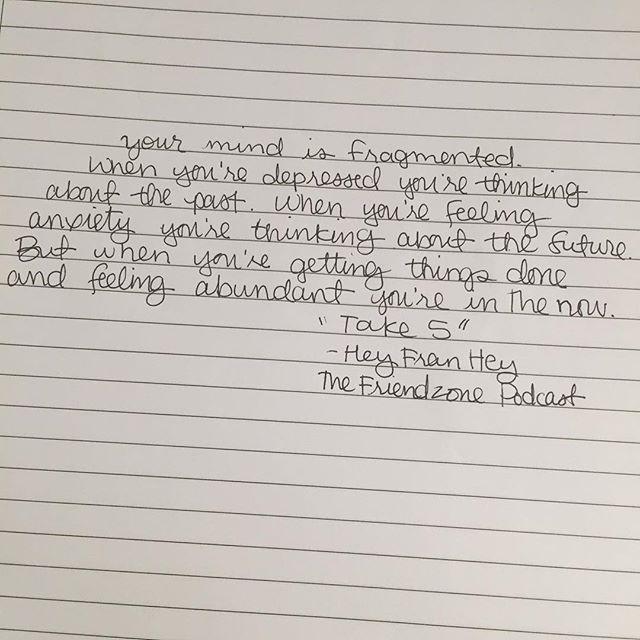 your mind is fragmented.
When you're depressed you're thinking
about the past. When you're feeling
anxiety you're thinking about the future.
But when you're getting things done
and feeling abundant you're in the now.
"Take 5"
-Hey Fran Hey
The Friendzone Podcast